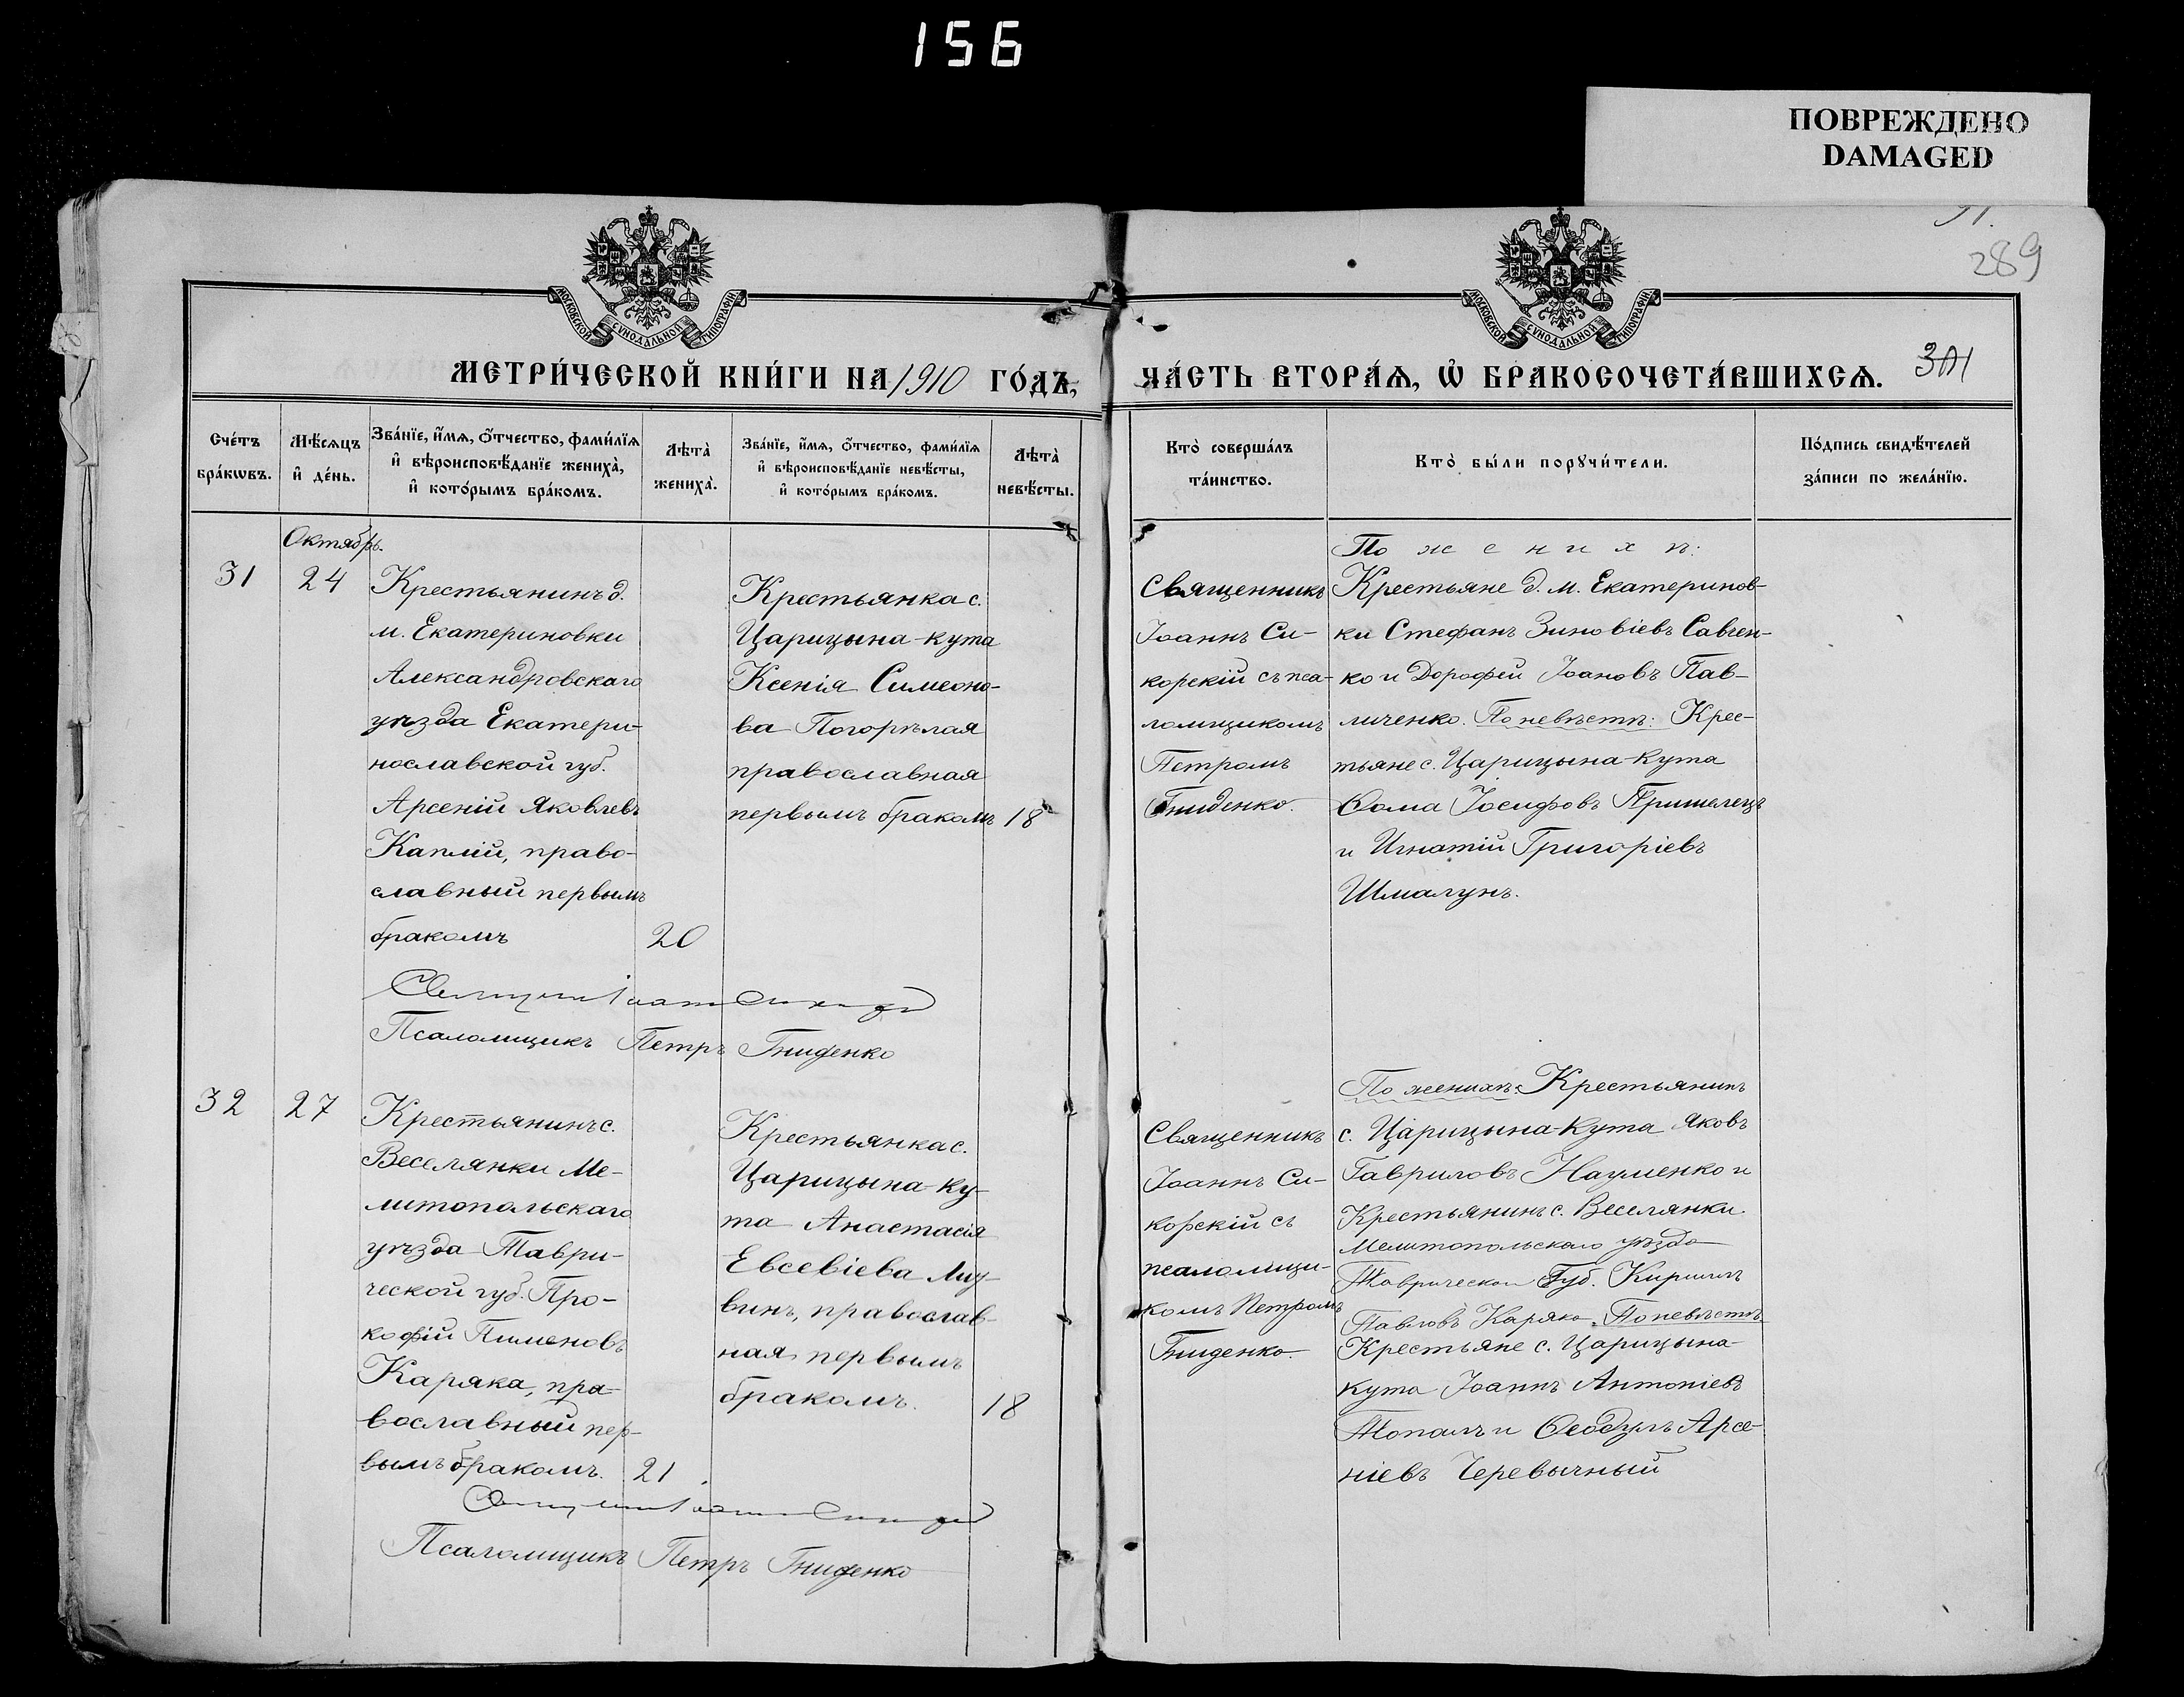 156
ПОВРЕЖДЕНО
DAMAGED
289
МОСКОВСКОЙ СУНОДАЛЬНОЙ ТИПОГРАФІИ
МОСКОВСКОЙ СУНОДАЛЬНОЙ ТИПОГРАФІИ
МЕТРИ́ЧЕСКОЙ КНИ́ГИ НА 1910 ГО́ДЪ,
ЧА́СТЬ ВТОРА́Ѧ, Ѽ БРАКОСОЧЕТА́ВШИХСѦ.
Сче́тъ
бра́кѡвъ.
Мѣ́сѧцъ
и҆ де́нь.
Зва́нїе, и҆́мѧ, ѻ҆́тчество, фами́лїѧ
и҆ вѣроисповѣ́данїе жениха̀,
и҆ кото́рымъ бра́комъ.
Лѣта̀
жениха̀.
Зва́нїе, и҆́мѧ, ѻ҆́тчество, фами́лїѧ
и҆ вѣроисповѣ́данїе невѣ́сты,
и҆ кото́рымъ бра́комъ.
Лѣта̀
невѣ́сты.
Кто̀ соверша́лъ
та́инство.
Кто̀ бы́ли порꙋчи́тели.
По́дпись свидѣ́телей
за́писи по жела́нїю.
Октябрь.
31
24
Крестьянинъ д.
м. Екатериновки
Александровскаго
уѣзда Екатери-
нославской губ.
Арсеній Яковлевъ
Каплій, право-
славный первымъ
бракомъ
20
Крестьянка с.
Царицына-кута
Ксенія Симеоно-
ва Погорѣлая
православная
первымъ бракомъ
18
Священникъ
Іоаннъ Си-
корскій съ пса-
ломщикомъ
Петромъ
Гниденко.
По женихѣ:
Крестьяне д. м. Екатеринов-
ки Стефанъ Зиновіевъ Савчен-
ко и Дорофей Іоановъ Пав-
личенко. По невѣстѣ: Крес-
тьяне с. Царицына-Кута
Ѳома Іосифовъ Пришелецъ
и Игнатій Григоріевъ
Шмалунъ.
Псаломщикъ Петръ Гниденко
32
27
Крестьянинъ с.
Веселянки Ме-
литопольскаго
уѣзда Таври-
ческой губ. Про-
кофій Пименовъ
Каряка, пра-
вославный пер-
вымъ бракомъ.
21
Крестьянка с.
Царицына-ку-
та Анастасія
Евсевіева Лит-
винъ, православ-
ная первымъ
бракомъ.
18
Священникъ
Іоаннъ Си-
корскій съ
псаломщи-
комъ Петромъ
Гниденко.
По женихѣ: Крестьянинъ
с. Царицына-Кута Яковъ
Гавриловъ Науменко и
Крестьянинъ с. Веселянки
Мелитопольскаго уѣзда
Таврической Губ. Кириллъ
Павловъ Каряка. По невѣстѣ
Крестьяне с. Царицына-
Кута Іоаннъ Антоніевъ
Топалъ и Ѳеодулъ Арсе-
ніевъ Черевычный
Псаломщикъ Петръ Гниденко